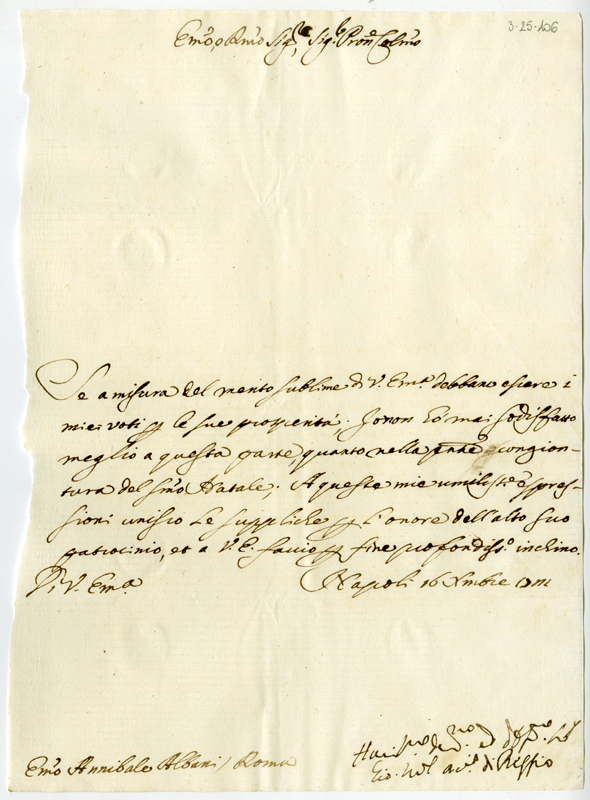 3-25-106
Em̃o, e Rm̃o Sig.re Sig.re Pron̄e Colm̃o
Se a misura del merito sublime di V. Em.a debbano essere i
miei voti p le sue prosperità; Io non hò mai sodisfatto
meglio a questa parte, quanto nella pn̄te congion-
tura del Sm̃o Natale; A queste mie umiliss.e espres-
sioni unisco le suppliche p l'onore dell'alto suo
patrocinio, et a V. E. faccio p fine profondiss.o inchino.
Di V. Em.a
Napoli 16 Xmbre
di Reggio
Em̃o Annibale Albani / Roma